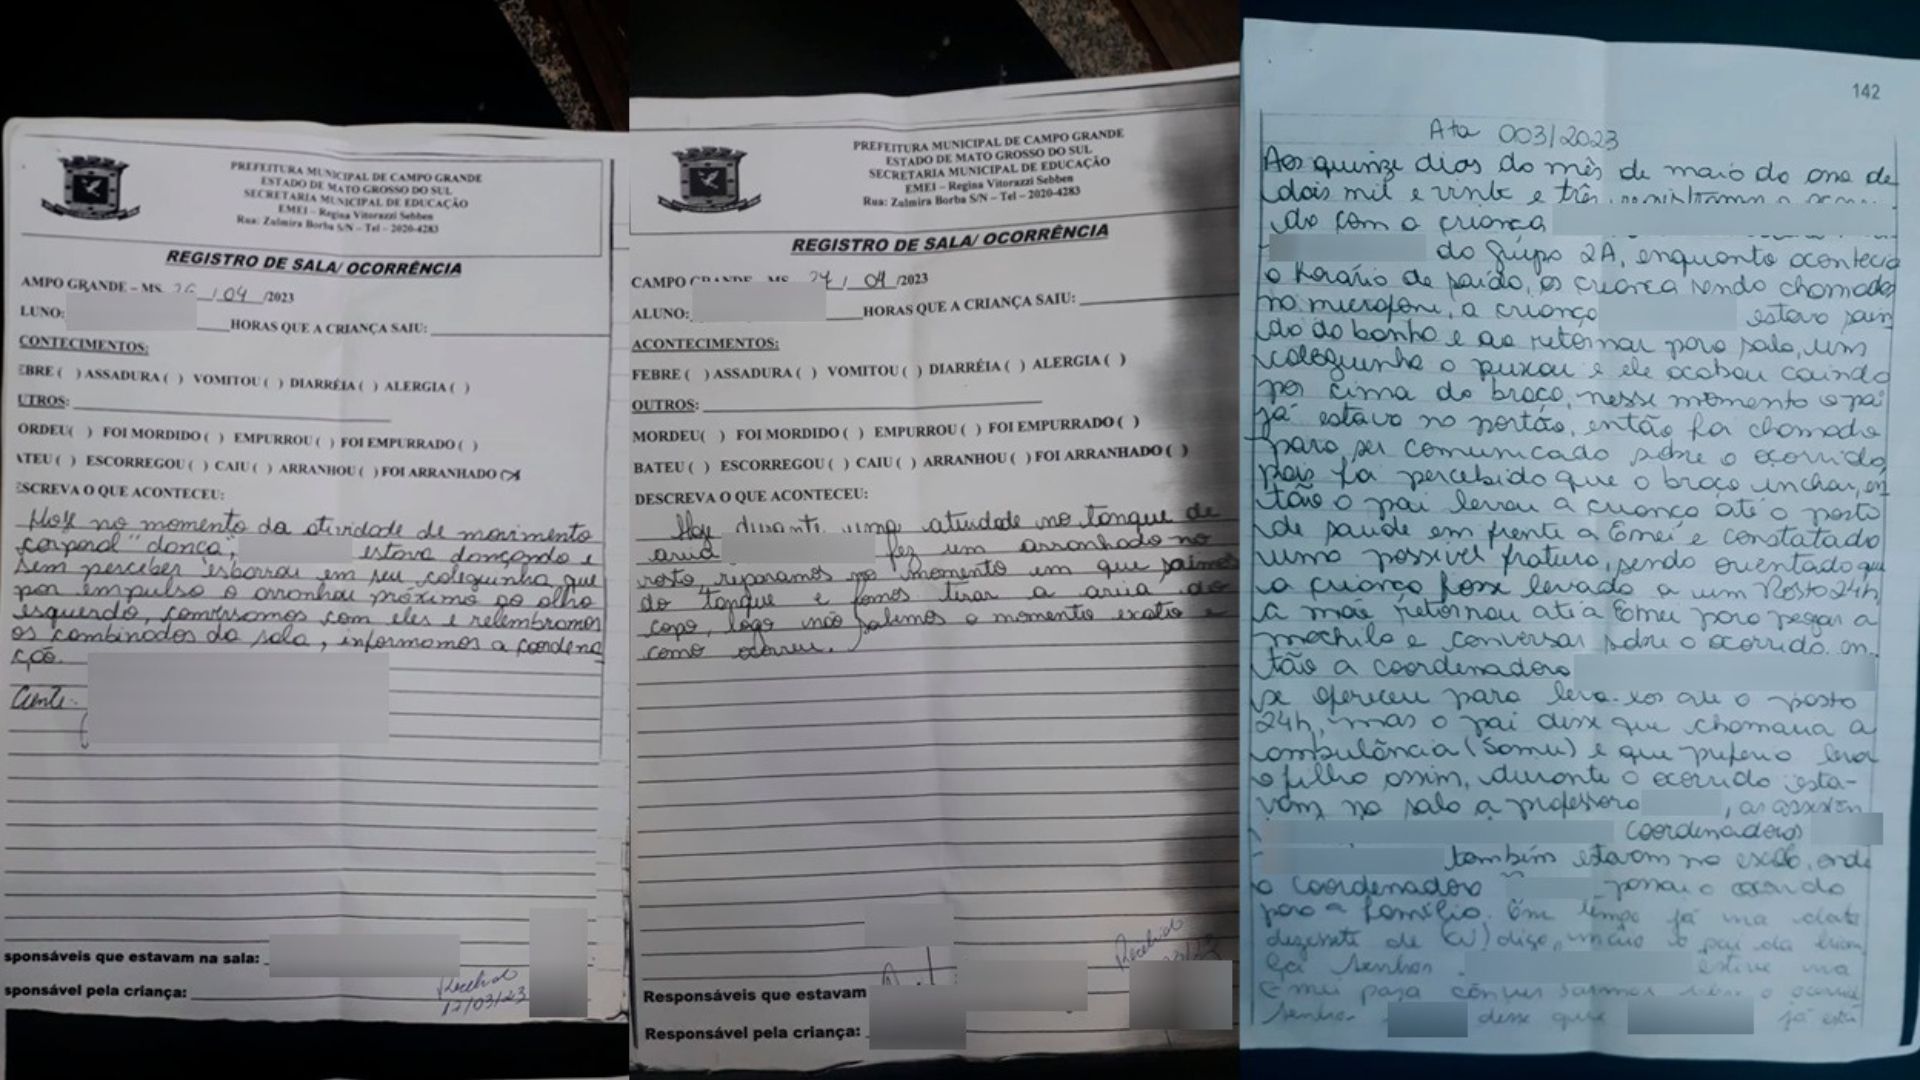 PREFEITURA MUNICIPAL DE CAMPO GRANDE
ESTADO DE MATO GROSSO DO SUL
SECRETARIA MUNICIPAL DE EDUCAÇÃO
EMEI – Regina Vitorazzi Sebben
Rua: Zulmira Borba S/N – Tel – 2020-4283
REGISTRO DE SALA/ OCORRÊNCIA
AMPO GRANDE – MS, 26 / 04 /2023
LUNO: HORAS QUE A CRIANÇA SAIU:
CONTECIMENTOS:
EBRE ( ) ASSADURA ( ) VOMITOU ( ) DIARRÉIA ( ) ALERGIA ( )
UTROS:
ORDEU( ) FOI MORDIDO ( ) EMPURROU ( ) FOI EMPURRADO ( )
ATEU ( ) ESCORREGOU ( ) CAIU ( ) ARRANHOU ( ) FOI ARRANHADO (X)
ESCREVA O QUE ACONTECEU:
Hoje no momento da atividade de movimento
corporal "dança", estava dançando e
sem perceber esbarrou em seu coleguinha que
por impulso o arranhou próximo ao olho
esquerdo, conversamos com eles e relembramos
os combinados da sala, informamos a coordena
ção.
Ciente
sponsáveis que estavam na sala:
sponsável pela criança:
Recebido
17/03/23
PREFEITURA MUNICIPAL DE CAMPO GRANDE
ESTADO DE MATO GROSSO DO SUL
SECRETARIA MUNICIPAL DE EDUCAÇÃO
EMEI – Regina Vitorazzi Sebben
Rua: Zulmira Borba S/N – Tel – 2020-4283
REGISTRO DE SALA/ OCORRÊNCIA
CAMPO GRANDE – MS, 27 / 04 /2023
ALUNO: HORAS QUE A CRIANÇA SAIU:
ACONTECIMENTOS:
FEBRE ( ) ASSADURA ( ) VOMITOU ( ) DIARRÉIA ( ) ALERGIA ( )
OUTROS:
MORDEU( ) FOI MORDIDO ( ) EMPURROU ( ) FOI EMPURRADO ( )
BATEU ( ) ESCORREGOU ( ) CAIU ( ) ARRANHOU ( ) FOI ARRANHADO ( )
DESCREVA O QUE ACONTECEU:
Hoje durante uma atividade no tanque de
areia fez um arranhado no
rosto, reparamos no momento em que saimos
do tanque e fomos tirar a areia do
copo, logo não sabemos o momento exato e
como ocorreu.
Recebido
Responsáveis que estavam
Responsável pela criança:
142
Ata 003/2023
Aos quinze dias do mês de maio do ano de
dois mil e vinte e três, registramos o
do com a criança
do grupo 2A, enquanto acontecia
o horário de saída, as criança sendo chamadas
no microfone, a criança estava sain
do do banho e ao retornar para sala, um
coleguinha o puxou e ele acabou caindo
por cima do braço, nesse momento o pai
já estava no portão, então foi chamado
para ser comunicado sobre o ocorrido,
pois foi percebido que o braço inchou, en
tão o pai levou a criança até o posto
de saúde em frente a Emei e constatado
uma possível fratura, sendo orientado que
a criança fosse levada a um Posto 24h,
a mãe retornou até a Emei para pegar a
mochila e conversar sobre o ocorrido, en
tão a coordenadora
se ofereceu para leva-los até o posto
24h, mas o pai disse que chamaria a
ambulância (Samu) e que preferia levar
o filho assim, durante o ocorrido esta-
vam na sala a professora , as assisten
coordenadoras
também estavam na escola, onde
a coordenadora passou o ocorrido
para a família. Em tempo já na data
dezessete de digo, maio o pai da crian
ça Senhor esteve na
Emei para conversarmos sobre o ocorrido
Senhor disse que já está